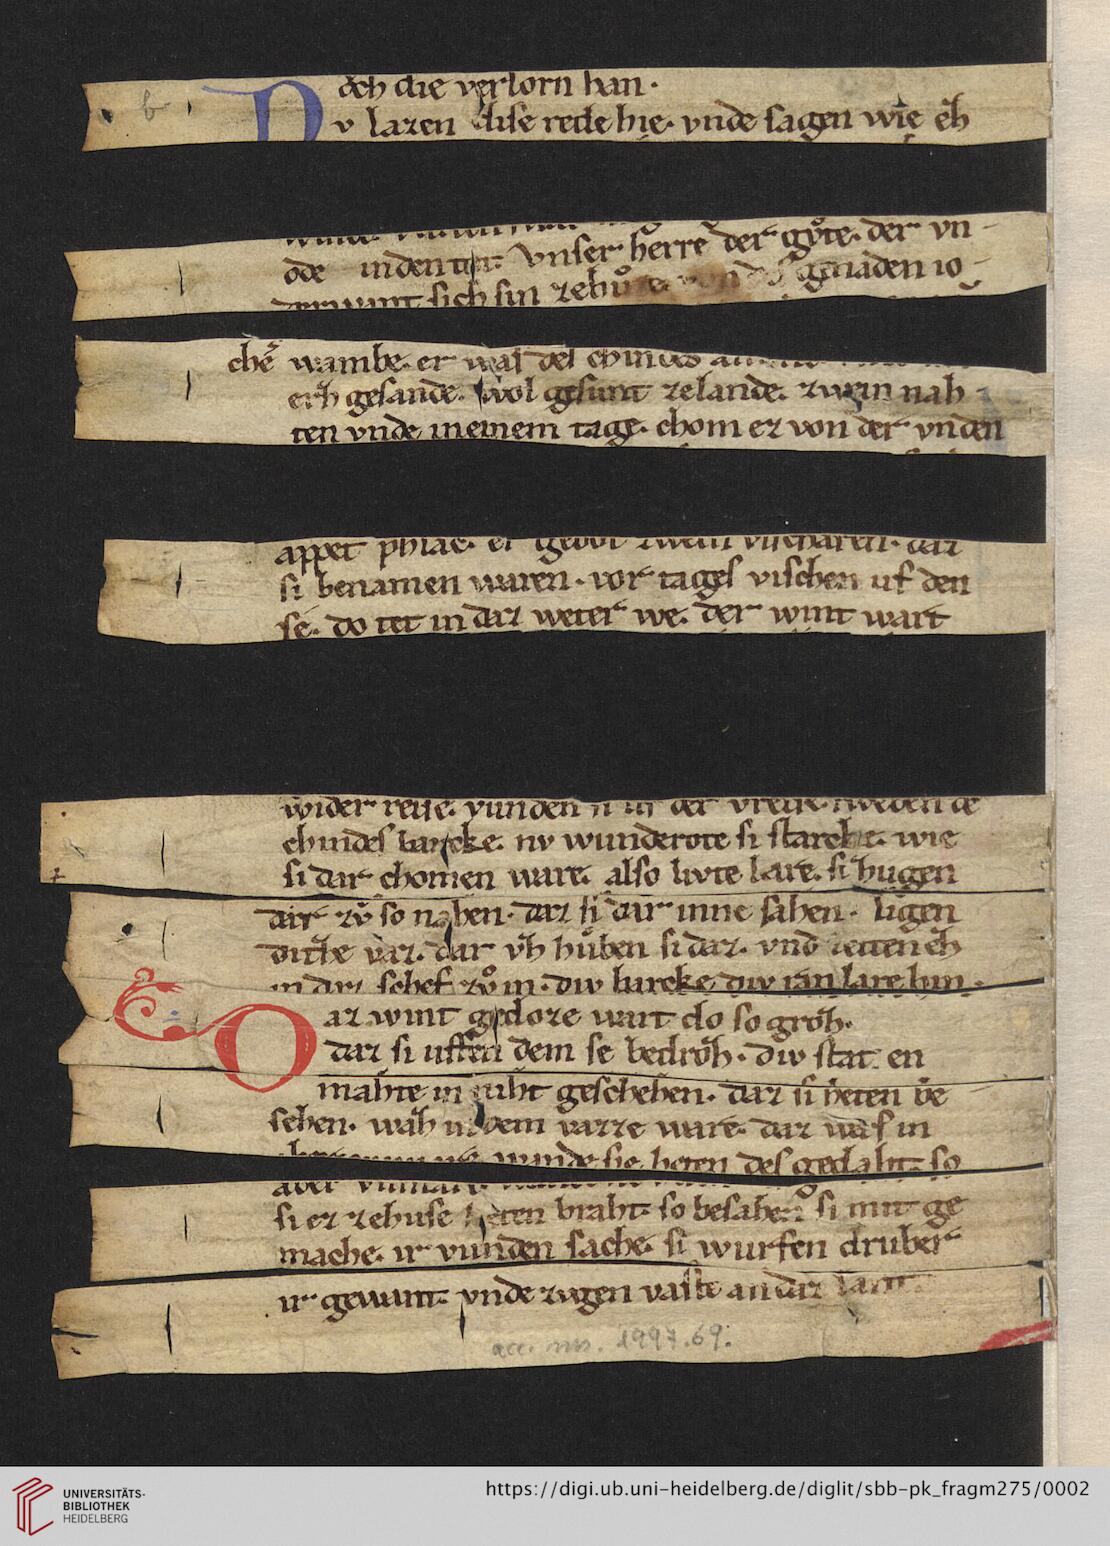 doh die verlorn han·
Nv lazen dise rede hie· vnde sagen wie eͮh
vnser herre der gůte· der vn-
ode in den
sich sin gnaden io-
chē wambe· er was des chindes
gesande· wol gesunt ze lande· zwein nah-
ten vnde in einem tage· chom er von der vnden
appet phlac· er gebot zwein vischaren· daz
si benamen waren· vor tages vischen uf den
se· do tet in daz weter we· der wint wart
wider vunden si in der vreise sweben de
chindes barcke· nv wunderote si starche· wie
si dar chomen ware· also livte lare· si hugen
dar zů so nahen· daz si dar inne sahen· ligen
vaz· dar hůben si daz· vnd
in daz schef zů in· div barcke div ran lare hin·
Daz wint gedoze wart do so groh·
daz si uffen dem se bedroh· div stat en
mahte in niht geschehen· daz si heten be
sehen· wah in dem vazze ware· daz was in
heten des gedaht· so
aber
si ez ze huse heten braht· so besahen si mit ge
mache· ir vunden sache· si wurfen druber
ir gewant· vnde zugen vaste an daz lant·
acc. ms. 1997.69.
UNIVERSITÄTS-
BIBLIOTHEK
HEIDELBERG
https://digi.ub.uni-heidelberg.de/diglit/sbb-pk_fragm275/0002